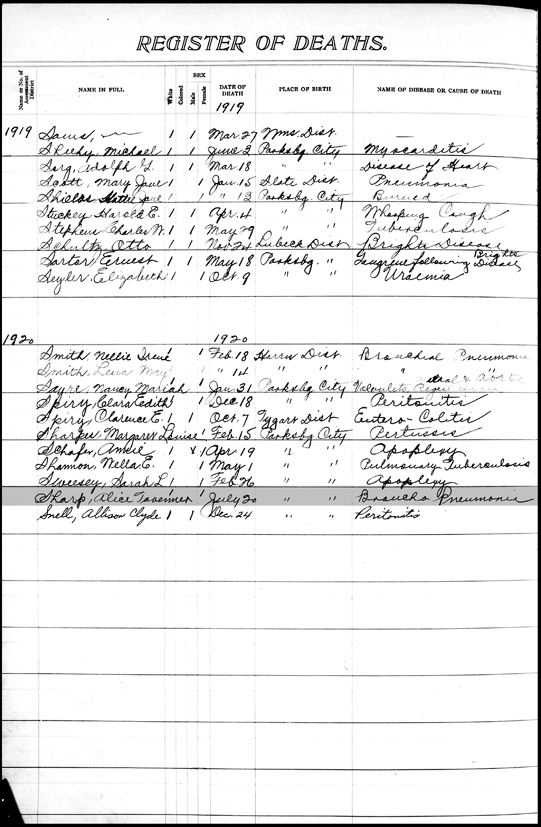 REGISTER OF DEATHS.
Name or No. of Assessment District NAME IN FULL White Colored SEX Male Female DATE OF DEATH 1919 PLACE OF BIRTH NAME OF DISEASE OR CAUSE OF DEATH
1919 Sams, — 1 1 Mar 27 Wms. Dist. —
Michael 1 1 June 2 Parksbg City Myocarditis
Sorg, Adolph G. 1 1 Mar 18 " " Disease of Heart
Scott, Mary Jane 1 1 Jan. 15 Slate Dist. Pneumonia
Shields Hattie Jane 1 1 " 13 Parksbg. City Burned
Stuckey Harold E. 1 1 Apr. 4 " " Whooping Cough
Stephens Charles W. 1 1 May 29 " " Tuberculosis
Schultz Otto 1 1 Nov. 24 Lubeck Dist Brights Disease
Sartor Ernest 1 1 May 18 Parksbg. " Gangrene following Brights Disease
Seyler Elizabeth 1 1 Oct. 9 " " Uraemia
1920 1920
Smith, Nellie Irene 1 Feb. 18 Harris Dist. Bronchial Pneumonia
Smith, Lena May 1 " 14 " " " "
Sayre, Nancy Mariah 1 Jan. 31 Parksbg City & Aorta
Spiry, Clara Edith 1 Dec 18 " " Peritonitis
Spiry, Clarence E. 1 1 Oct. 7 Tygart Dist Entero-Colitis
Sharper Margaret Louise 1 Feb. 15 Parksbg City Pertussis
Schafer, Amelie 1 x 1 Apr. 19 " " Apoplexy
Shannon, Nella E. 1 1 May 1 " " Pulmonary Tuberculosis
Sweesey, Sarah L. 1 1 Feb 26 " " Apoplexy
Sharp, Alice Tavenner 1 July 20 " " Broncho Pneumonia
Snell, Allison Clyde 1 1 Dec. 24 " " Peritonitis